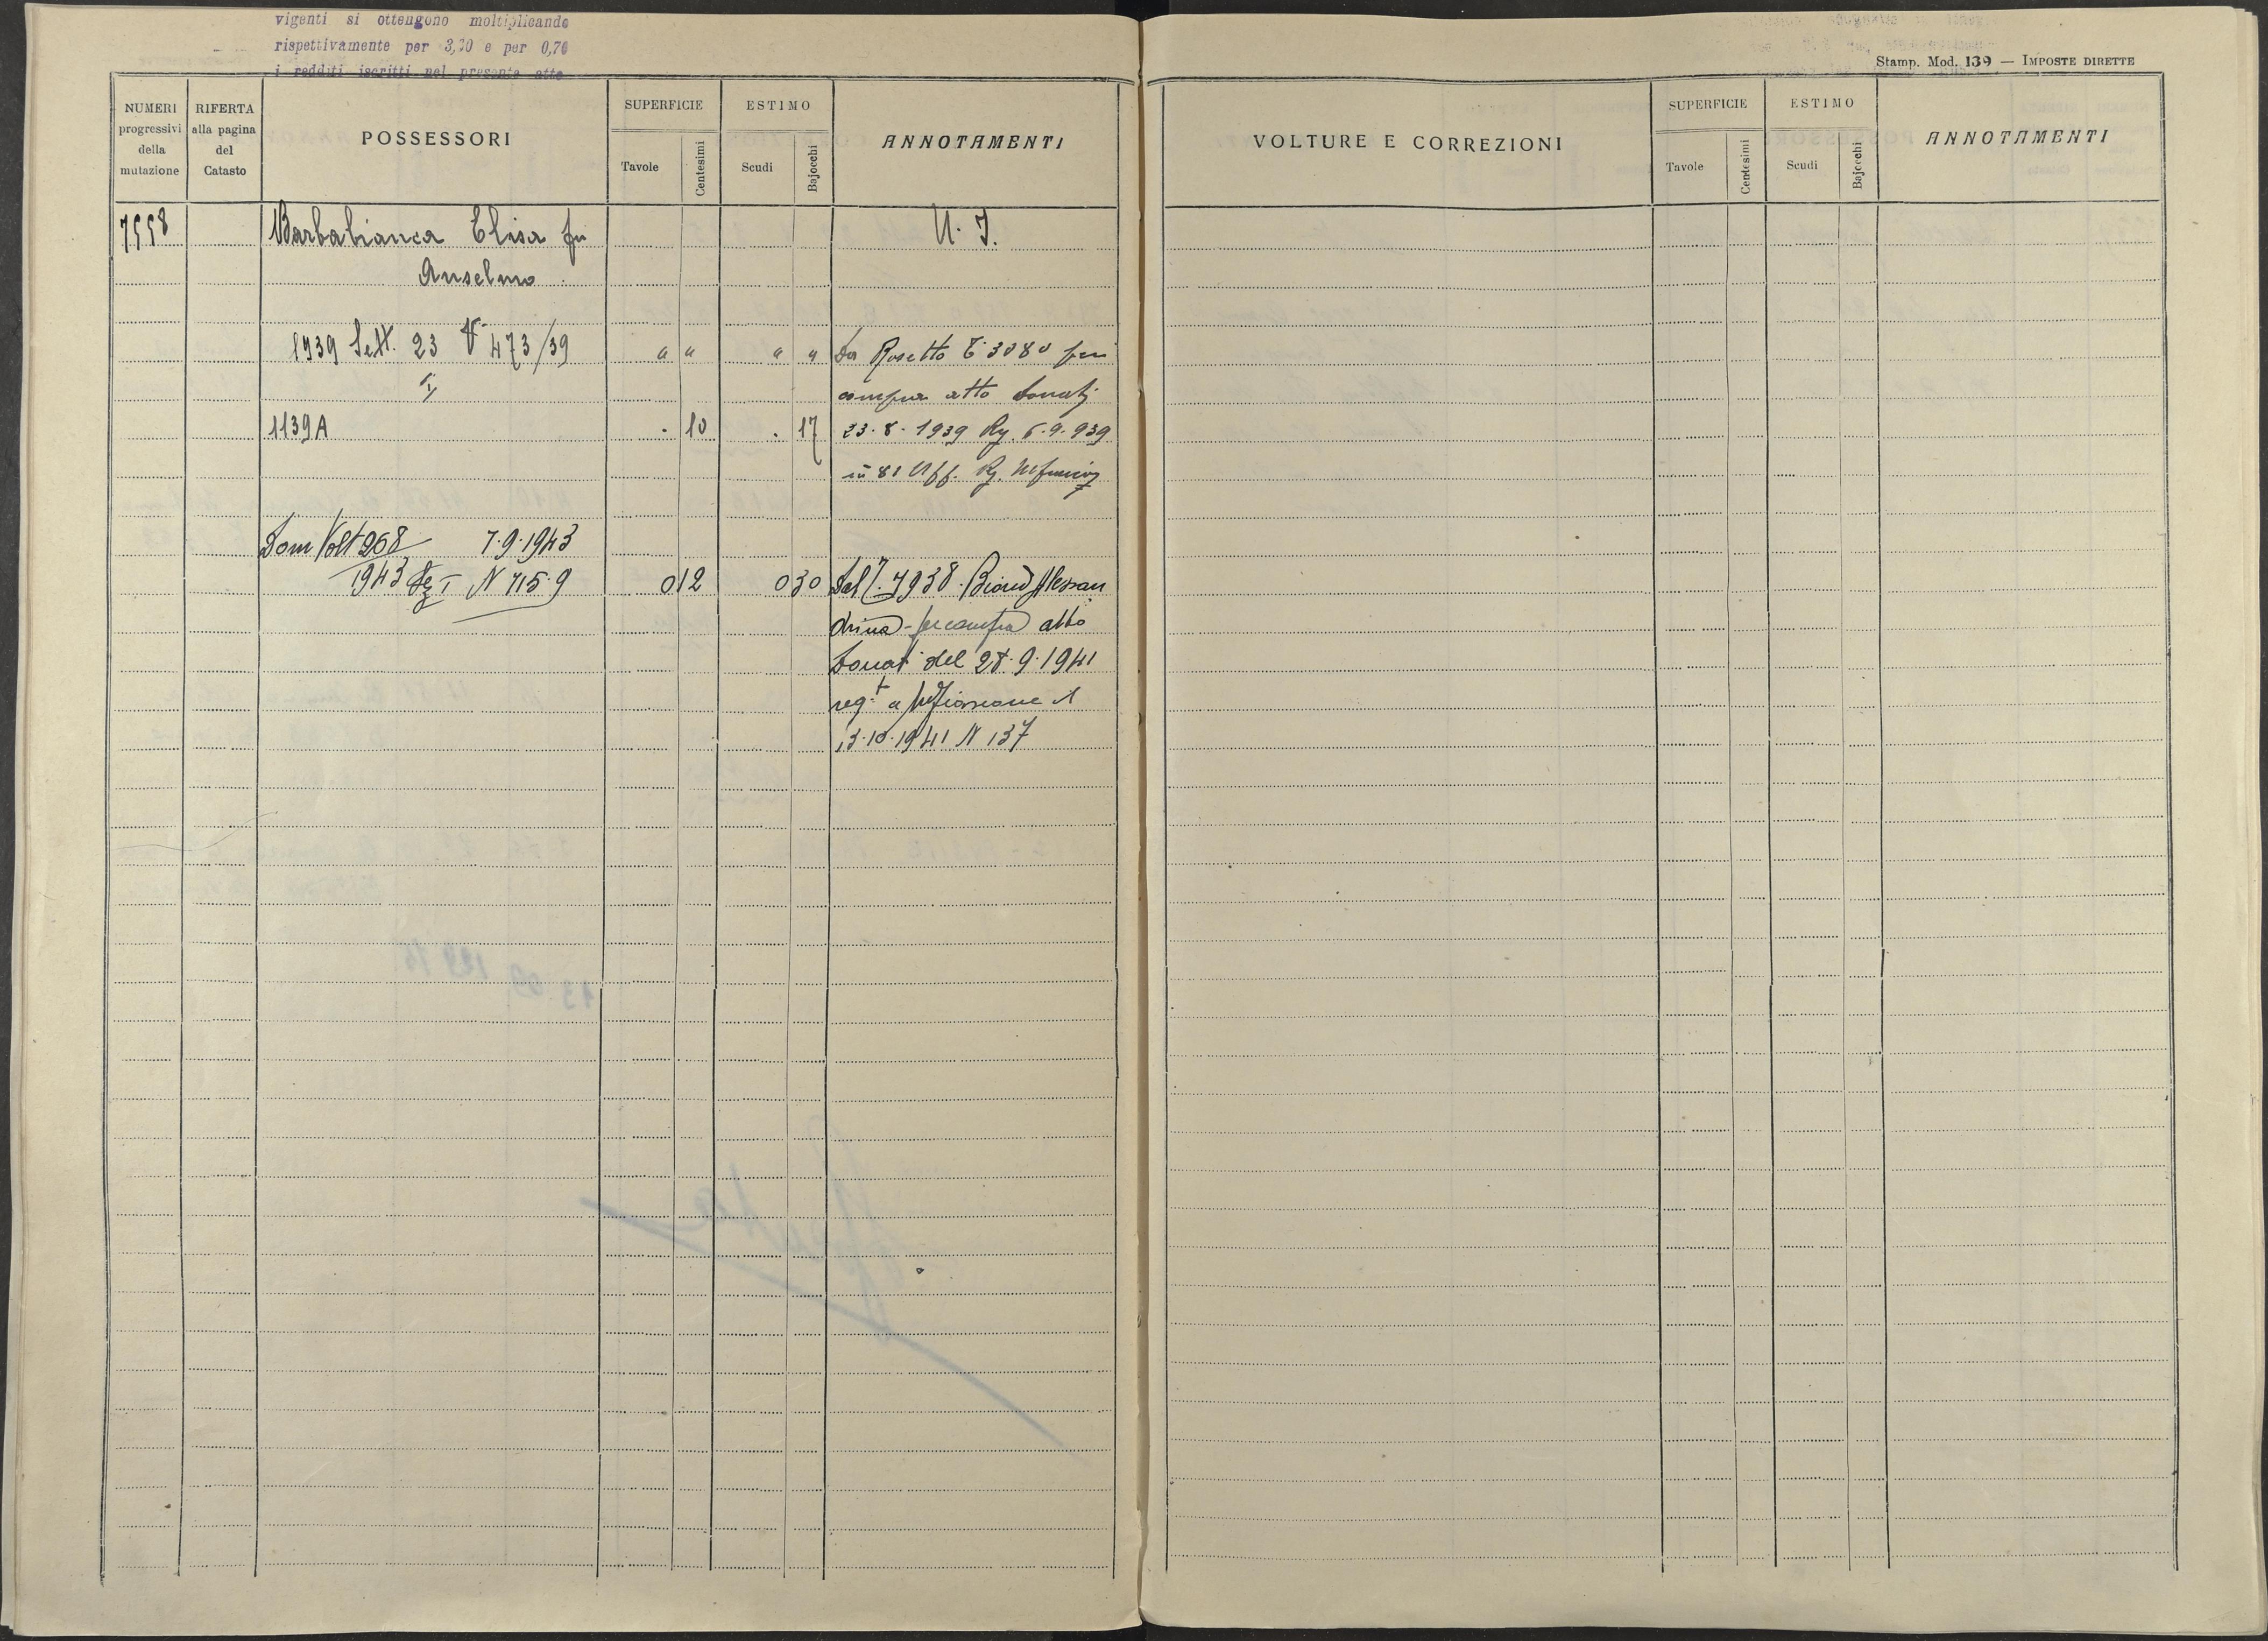 vigenti si ottengono moltiplicando
rispettivamente per 3,20 e per 0,70
i redditi iscritti nel presente atto
Stamp. Mod. 139 — IMPOSTE DIRETTE
NUMERI progressivi della mutazione
RIFERTA alla pagina del Catasto
POSSESSORI
SUPERFICIE
Tavole
Centesimi
ESTIMO
Scudi
Bajocchi
ANNOTAMENTI
VOLTURE E CORREZIONI
SUPERFICIE
Tavole
Centesimi
ESTIMO
Scudi
Bajocchi
ANNOTAMENTI
7558 Barbabianca Elisa fu U. I.
Anselmo
1939 Sett. 23 V 473/39 " " " " Da Rosetto 3080 per
compra atto Donati
1139 A . 10 . 17 23.8.1939 Rg. 6.9.939
n 81 Uff. Rg.
Dom Volt 268 7.9.1943
1943 Sez I N 715.9 0 12 0 30 Dal 7938 Biondi Alessan
drina - per compra atto
Donati del 28.9.1941
reg.t a
13.10.1941 N 137